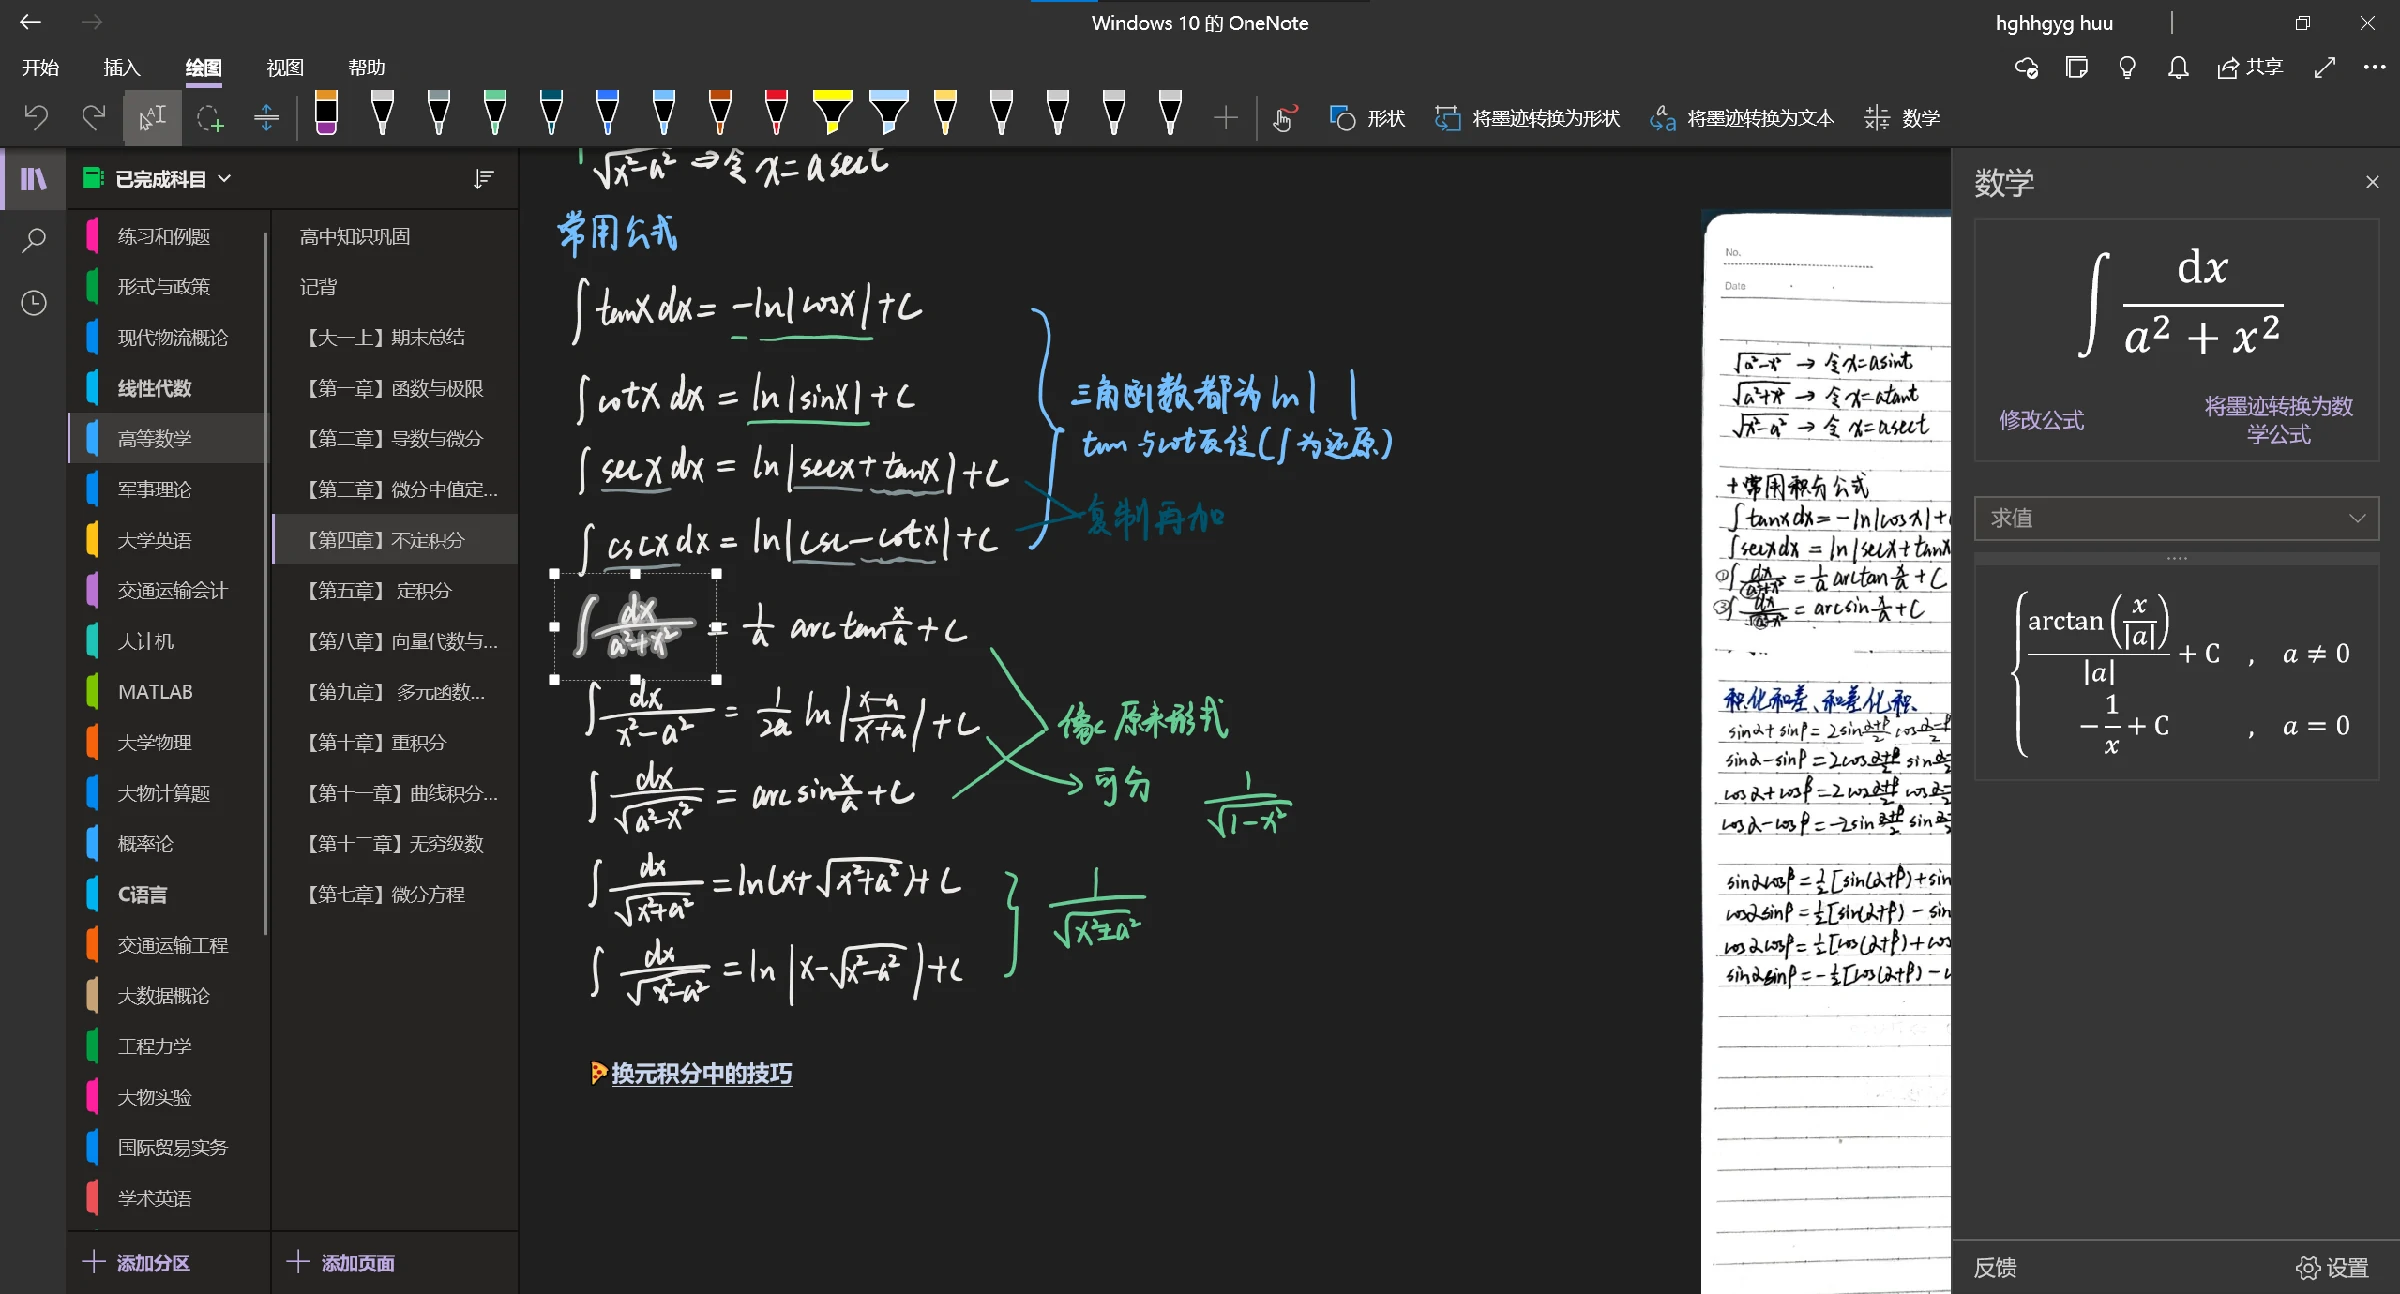 Windows 10 的 OneNote
hghhgyg huu
开始 插入 绘图 视图 帮助
共享
形状 将墨迹转换为形状 将墨迹转换为文本 数学
已完成科目
练习和例题
形式与政策
现代物流概论
线性代数
高等数学
军事理论
大学英语
交通运输会计
大计机
MATLAB
大学物理
大物计算题
概率论
C语言
交通运输工程
大数据概论
工程力学
大物实验
国际贸易实务
学术英语
添加分区
高中知识巩固
记背
【大一上】期末总结
【第一章】函数与极限
【第二章】导数与微分
【第三章】微分中值定...
【第四章】不定积分
【第五章】 定积分
【第八章】向量代数与...
【第九章】 多元函数...
【第十章】重积分
【第十一章】曲线积分...
【第十二章】无穷级数
【第七章】微分方程
添加页面
√(x²-a²) ⇒ 令 x = a sect
常用公式
∫tanx dx = -ln|cosx|+C
∫cotx dx = ln|sinx|+C
∫secx dx = ln|secx+tanx|+C
∫cscx dx = ln|csc-cotx|+C
三角函数都为ln| |
tan与cot反位(∫为还原)
复制再加
∫dx/(a²+x²) = 1/a arctan x/a + C
∫dx/(x²-a²) = 1/2a ln|(x-a)/(x+a)| + C
∫dx/√(a²-x²) = arcsin x/a + C
像c原来形式
可分
1/√(1-x²)
∫dx/√(x²+a²) = ln(x+√(x²+a²)) + C
∫dx/√(x²-a²) = ln|x-√(x²-a²)| + C
1/√(x²±a²)
🍕换元积分中的技巧
No.
Date
√(a²-x²) → 令x=asint
√(a²+x²) → 令x=atant
√(x²-a²) → 令x=asect
+常用积分公式
∫tanxdx = -ln|cosx|+
∫secxdx = ln|secx+tanx
① ∫dx/(a²+x²) = 1/a arctan x/a + C
② ∫dx/√(a²-x²) = arcsin x/a + C
积化和差、和差化积
sinα+sinβ = 2sin (α+β)/2 cos
sinα-sinβ = 2cos (α+β)/2 sin
cosα+cosβ = 2cos (α+β)/2 cos
cosα-cosβ = -2sin (α+β)/2 sin
sinαcosβ = ½[sin(α+β)+sin
cosαsinβ = ½[sin(α+β)-sin
cosαcosβ = ½[cos(α+β)+cos
sinαsinβ = -½[cos(α+β)-c
数学
∫ dx/(a² + x²)
修改公式
将墨迹转换为数
学公式
求值
arctan(x/|a|)/|a| + C , a ≠ 0
-1/x + C , a = 0
反馈 设置